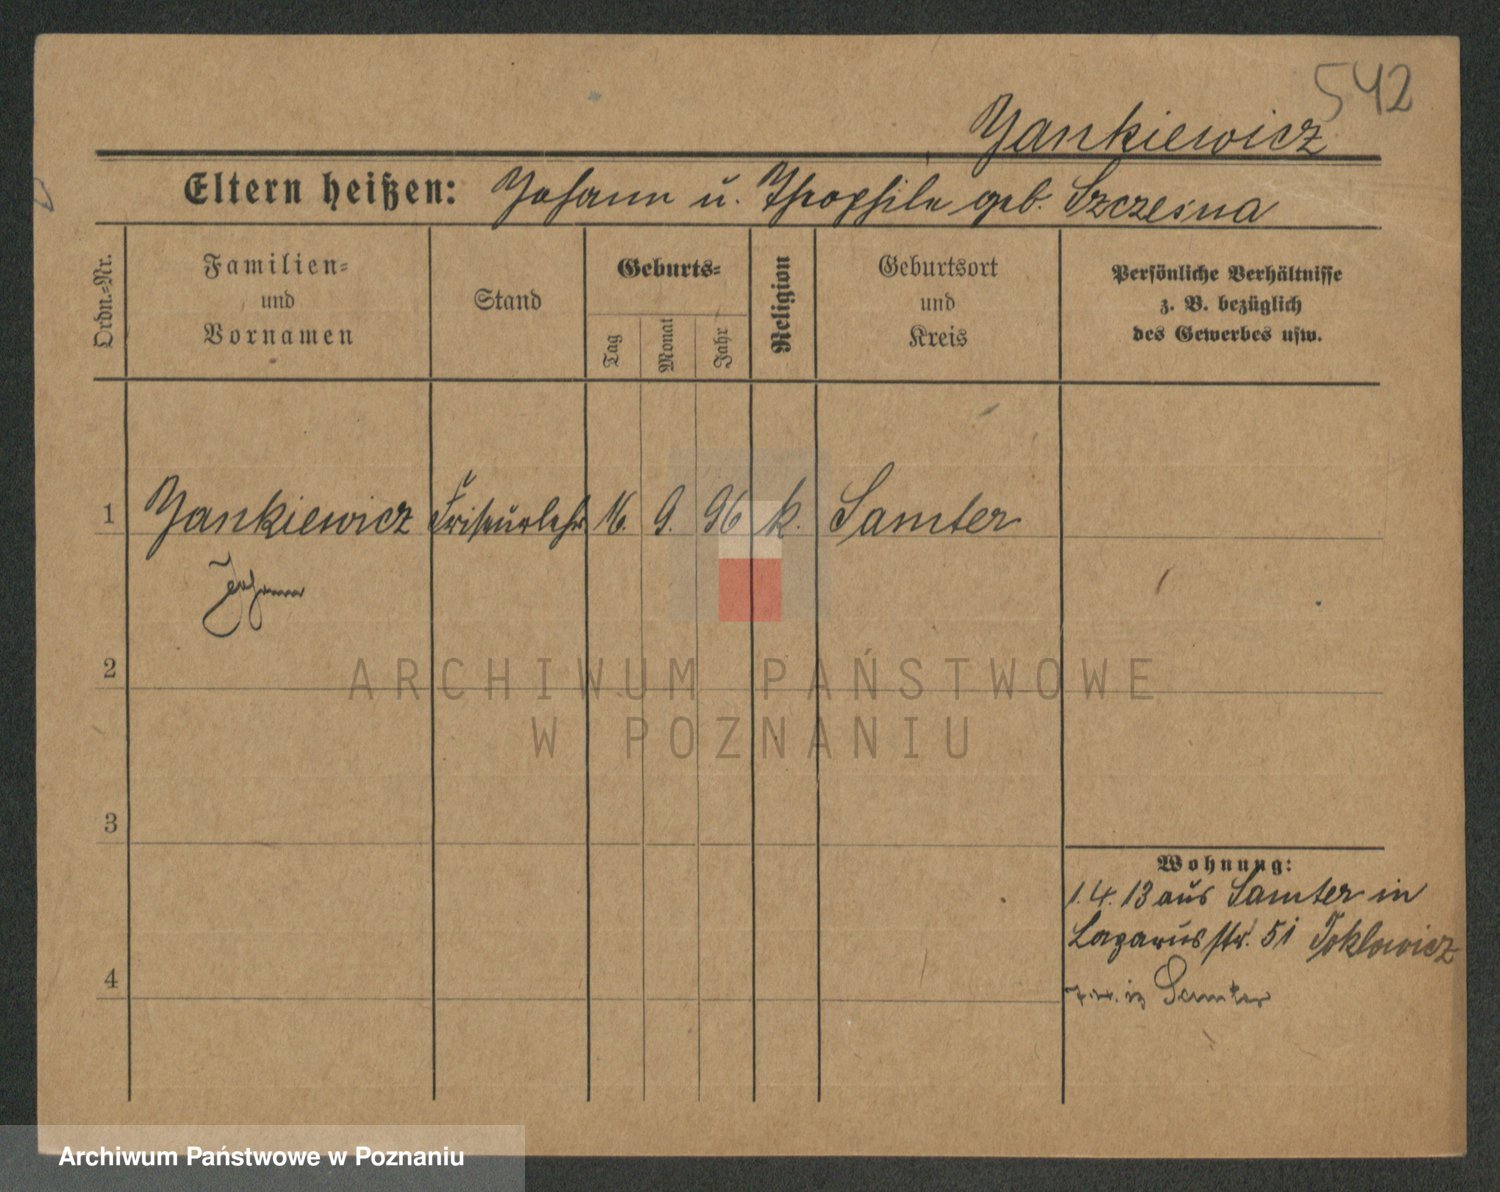 542
Yankiewicz
Eltern heißen: Johann u. Theophile geb. Szczesna
Ordn.-Nr.
Familien-
und
Vornamen
Stand
Geburts-
Tag
Monat
Jahr
Religion
Geburtsort
und
Kreis
Persönliche Verhältnisse
z. B. bezüglich
des Gewerbes usw.
1 Yankiewicz Friseurlehr 16. 9. 96 k. Samter
Johann
2
3
4
Wohnung:
1.4.13 aus Samter in
Lazarusstr. 51
Samter
ARCHIWUM PAŃSTWOWE
W POZNANIU
Archiwum Państwowe w Poznaniu